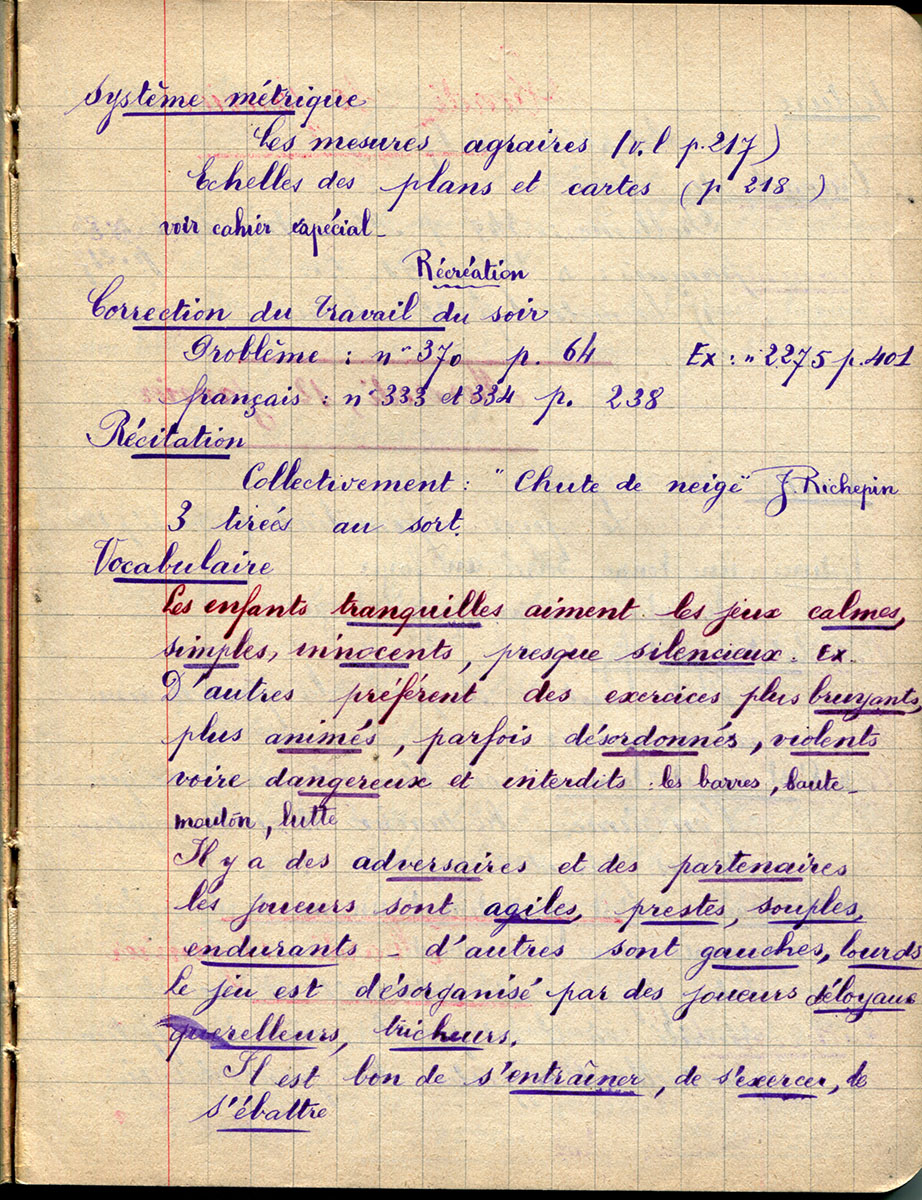 Système métrique
Les mesures agraires (v. l p. 217)
Echelles des plans et cartes (p 218)
voir cahier spécial_
Récréation
Correction du travail du soir
Problème : n° 370 p. 64 Ex : n° 2275 p. 401
français : n° 333 et 334 p. 238
Récitation
Collectivement : "Chute de neige" J. Richepin
3 tirées au sort.
Vocabulaire
Les enfants tranquilles aiment les jeux calmes,
simples, innocents, presque silencieux. Ex.
D'autres préfèrent des exercices plus bruyants,
plus animés, parfois désordonnés, violents
voire dangereux et interdits : les barres, saute-
mouton, lutte
Il y a des adversaires et des partenaires
les joueurs sont agiles, prestes, souples,
endurants _ d'autres sont gauches, lourds
Le jeu est désorganisé par des joueurs déloyaux
querelleurs, tricheurs.
Il est bon de s'entraîner, de s'exercer, de
s'ébattre